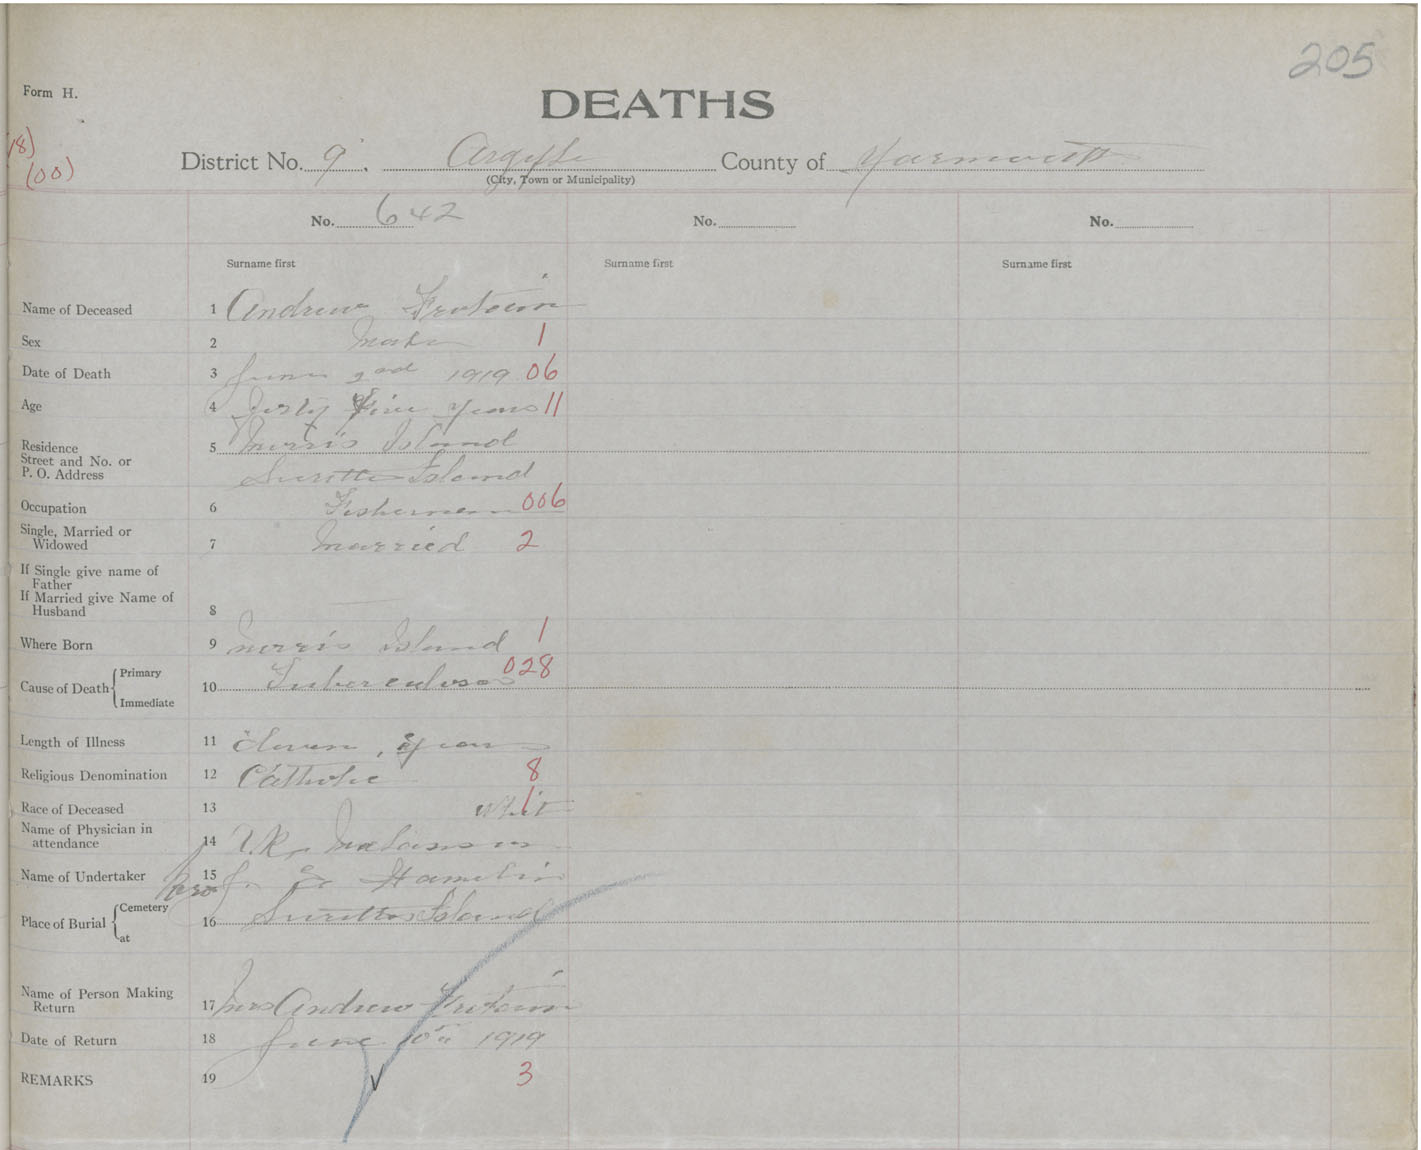 205
Form H.
DEATHS
18)
(00)
District No. 9. Argyle County of Yarmouth
(City, Town or Municipality)
No. 642 No. No.
Surname first Surname first Surname first
Name of Deceased 1 Andrew
Sex 2 Male 1
Date of Death 3 June 2nd 1919 06
Age 4 forty five years 11
Residence 5 Morris Island
Street and No. or
P. O. Address Surettes Island
Occupation 6 Fisherman 006
Single, Married or
Widowed 7 Married 2
If Single give name of
Father
If Married give Name of
Husband 8 —
Where Born 9 Morris Island 1
Cause of Death Primary 10 Tuberculosis 028
Immediate
Length of Illness 11 years
Religious Denomination 12 Catholic 8
Race of Deceased 13 Whit 1
Name of Physician in
attendance 14
Name of Undertaker 15
Place of Burial Cemetery 16 Surettes Island
at
Name of Person Making
Return 17 Mrs Andrew
Date of Return 18 June 10th 1919
REMARKS 19 3